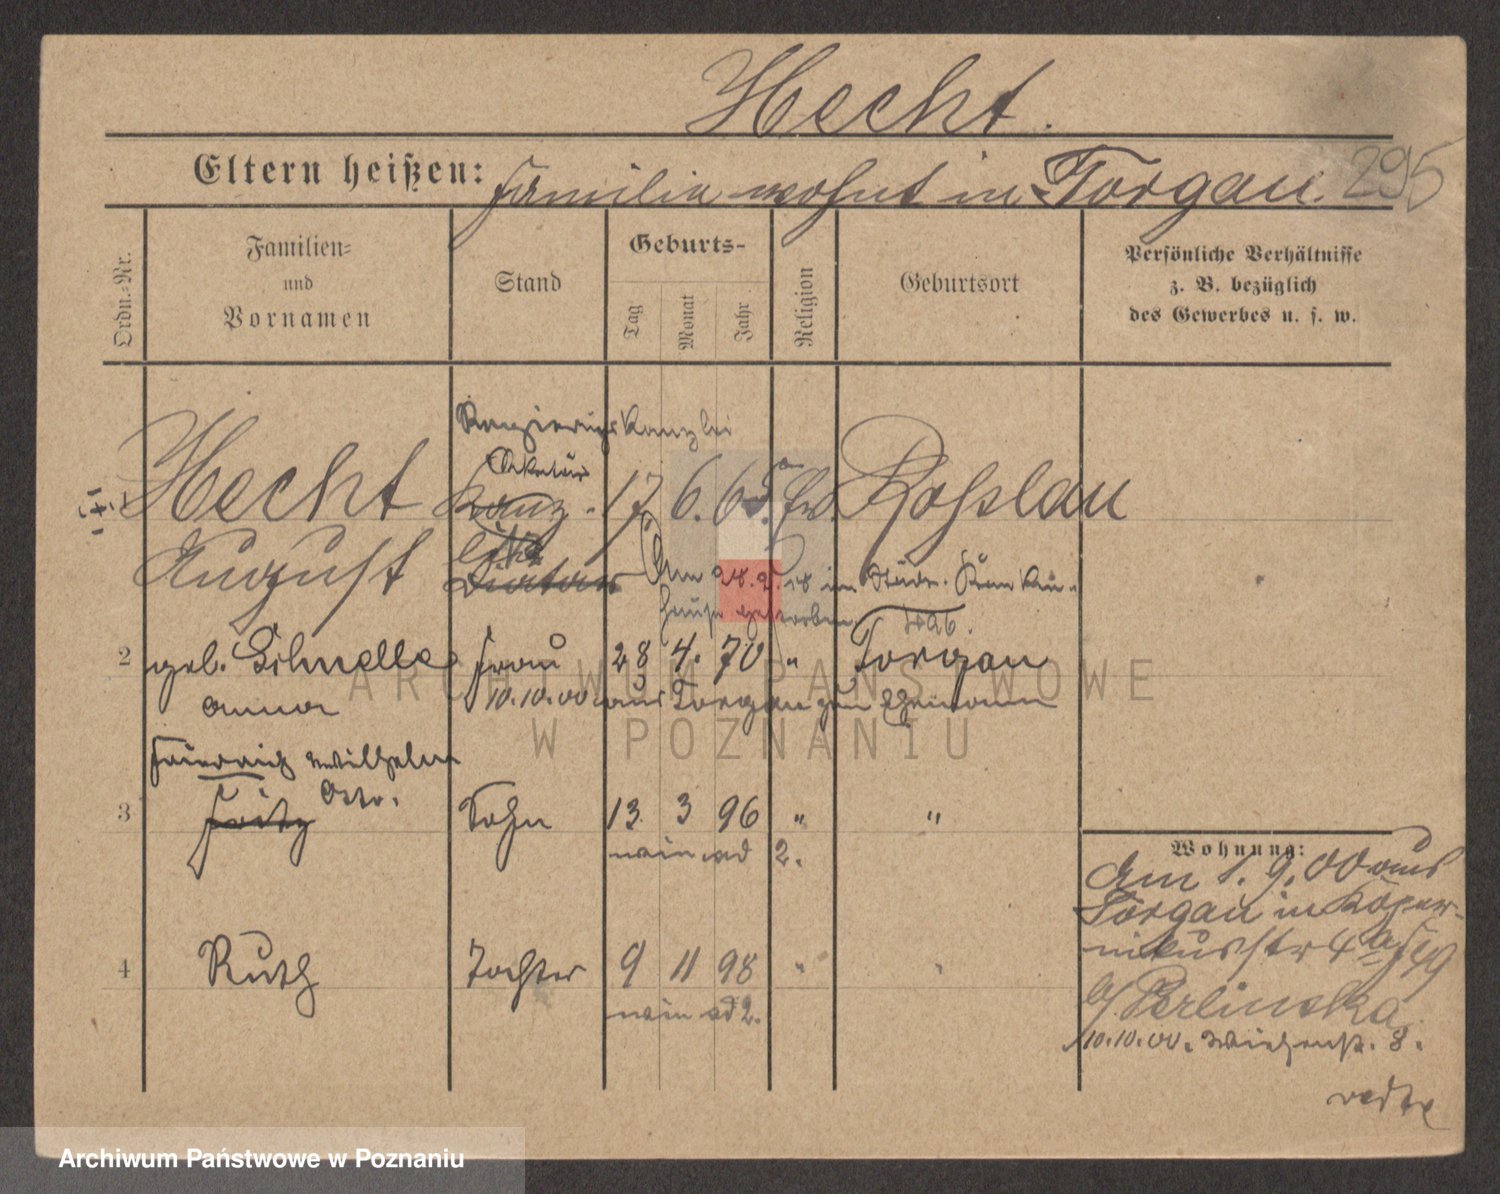 Hecht.
Eltern heißen: Familie wohnt in Torgau. 295
Ordn.-Nr.
Familien-
und
Vornamen
Stand
Geburts-
Tag
Monat
Jahr
Religion
Geburtsort
Persönliche Verhältnisse
z. B. bezüglich
des Gewerbes u. s. w.
Regierungs Kanzlei
Sekretär
1 Hecht Kanz- 17 6. 65. ev. Roßlau
August list
Diätar
Am 28.2.18 im Städt. Kranken-
hause gestorben
2 geb. Schnelle Frau 28 4. 70 " Torgau
Anna 10.10.00 aus Torgau zum Ehemann
Friedrich Wilhelm
Otto.
3 Fritz Sohn 13. 3 96 " "
wie ad 2.
4 Ruth Tochter 9 11 98 " "
wie ad 2.
Wohnung:
Am 1.9.00 aus
Torgau in Koper-
nikusstr 4a
b/ Perlinska
10.10.00. 8.
ARCHIWUM PAŃSTWOWE
W POZNANIU
Archiwum Państwowe w Poznaniu